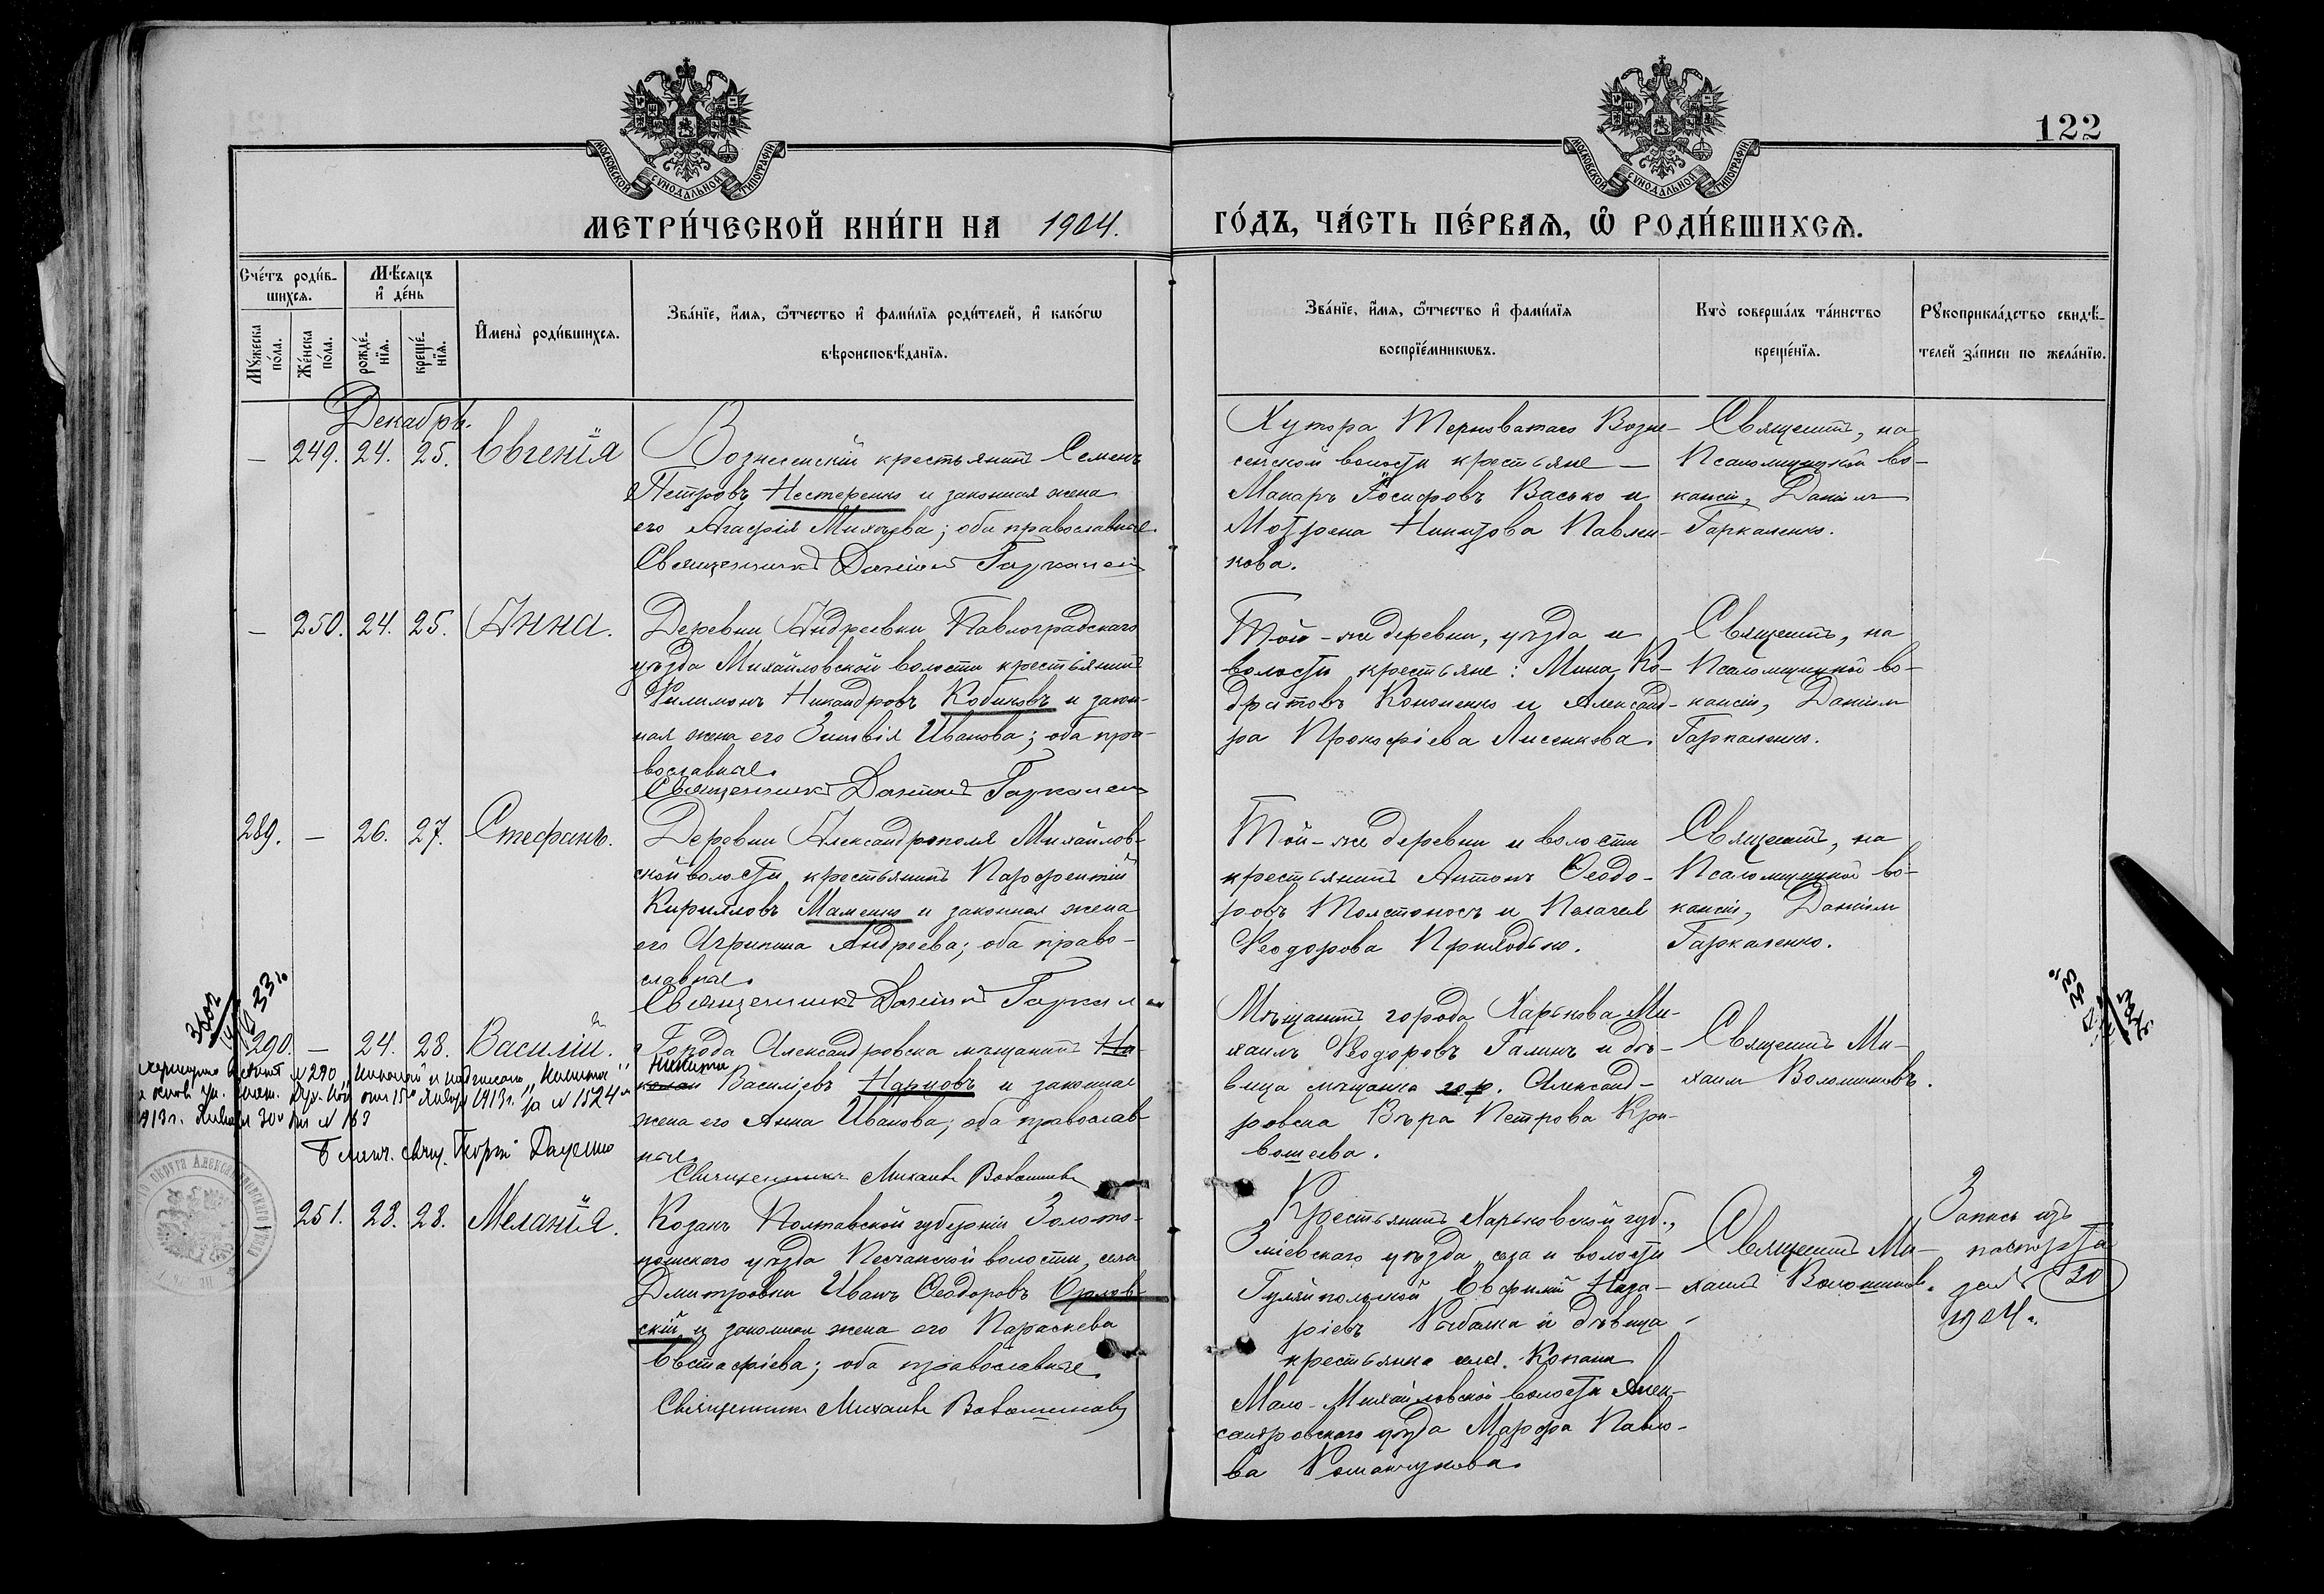 122
МОСКОВСКОЙ СУНОДАЛЬНОЙ ТИПОГРАФІИ
МОСКОВСКОЙ СУНОДАЛЬНОЙ ТИПОГРАФІИ
МЕТРИ́ЧЕСКОЙ КНИ́ГИ НА 1904.
ГО́ДЪ, ЧА́СТЬ ПЕ́РВАѦ, Ѿ РОДИ́ВШИХСѦ.
Сче́тъ роди́вшихсѧ.
Мѣ́сѧцъ и҆ де́нь
Мꙋ́жеска по́ла.
Же́нска по́ла.
рожде́нїѧ.
креще́нїѧ.
И҆мена̀ роди́вшихсѧ.
Зва́нїе, и҆́мѧ, ѻ҆́тчество и҆ фами́лїѧ роди́телей, и҆ како́гѡ
вѣроисповѣ́данїѧ.
Зва́нїе, и҆́мѧ, ѻ҆́тчество и҆ фами́лїѧ
воспрїе́мникѡвъ.
Кто̀ соверша́лъ та́инство
креще́нїѧ.
Рꙋкоприкла́дство свидѣ́-
телей за́писи по жела́нїю.
Декабрь.
— 249. 24. 25. Евгенія
Вознесенскій крестьянинъ Семенъ
Петровъ Нестеренко и законная жена
его Агафія Михеева; оба православные
Священникъ Даніилъ Гаркален
Хутора Терноватаго Возне-
сенской волости крестьяне —
Макаръ Іосифовъ Васько и
Мотрона Никитова Павлен-
кова.
Священ, на
Псаломщицкой ва-
кансіи, Даніилъ
Гаркаленко.
— 250. 24. 25. Анна.
Деревни Андреевки Павлоградскаго
уѣзда Михайловской волости крестьянинъ
Филимонъ Никандровъ Кобиковъ и закон-
ная жена его Зиновія Иванова; оба пра-
вославные.
Священникъ Даніилъ Гаркален
Той-же деревни, уѣзда и
волости крестьяне: Мина Ко-
дратовъ Кононенко и Александ-
ра Прокофіева Лисенкова.
Священ, на
Псаломщицкой ва-
кансіи, Даніилъ
Гаркаленко.
289. — 26. 27. Стефанъ.
Деревни Александрополя Михайлов-
ской волости крестьянинъ Парфентій
Кирилловъ Маменко и законная жена
его Агрипина Андреева; оба право-
славные.
Священникъ Даніилъ Гаркален
Той-же деревни и волости
крестьянинъ Антонъ Ѳеодо-
ровъ Толстоносъ и Пелагея
Ѳеодорова Приходько.
Священ, на
Псаломщицкой ва-
кансіи, Даніилъ
Гаркаленко.
290. — 24. 28. Василій.
Города Александровска мѣщанинъ Ни-
колай Никита Василіевъ Нарцовъ и законная
жена его Анна Иванова; оба православ-
ные.
Священникъ Михаилъ Волошиновъ
Мѣщанинъ города Харькова Ми-
хаилъ Ѳеодоровъ Галинъ и дѣ-
вица мѣщанка гор. Александ-
ровска Вѣра Петрова Кри-
вошеева.
Священ Ми-
хаилъ Волошиновъ.
№ 290 "Николай" и надписано "Никита"
15го Января 1913 г. за № 1524
1913 г. Января 30 дня № 163
251. 28. 28. Меланія.
Козакъ Полтавской губерніи Золото-
ношскаго уѣзда Песчанской волости, села
Дмитровки Иванъ Ѳеодоровъ Орлов-
скій и законная жена его Параскева
Евстафіева; оба православные.
Священникъ Михаилъ Волошиновъ
Крестьянинъ Харьковской губ.,
Зміевскаго уѣзда, села и волости
Гуляйпольской Евфимій Наза-
ріевъ Рыбалка и дѣвица
крестьянка села Копани
Мало-Михайловской волости Алек-
сандровскаго уѣзда Марфа Павло-
ва Романчукова.
Священ Ми-
хаилъ Волошиновъ.
Запись изъ
паспорта
1904.